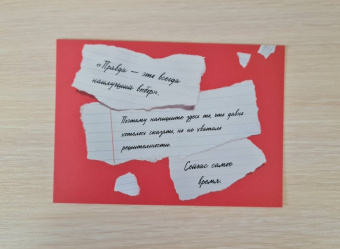 «Правда — это всегда
наилучший выбор».
Поэтому напишите здесь то, что давно
хотелось сказать, но не хватало
решительности.
Сейчас самое
время.